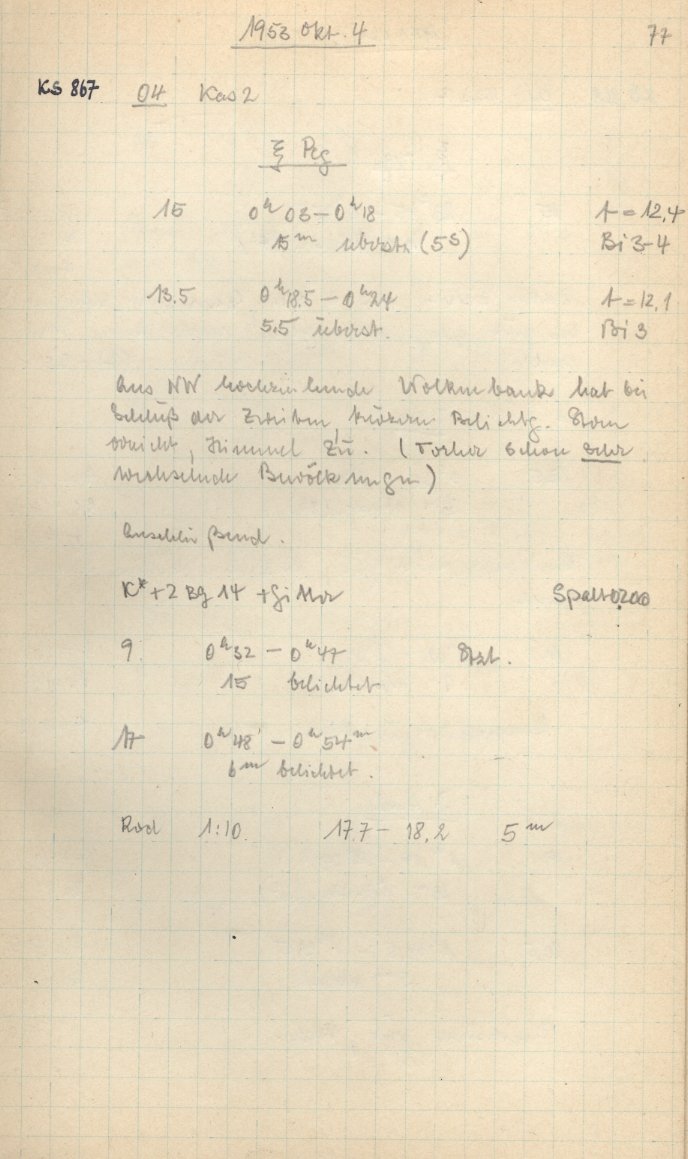 1953 Okt. 4 77
KS 867 04 Kas 2
ξ Peg
15 0h 03 – 0h 18 t = 12,4
15m überstr. (5s) Bi 3-4
13.5 0h 18.5 – 0h 24 t = 12,1
5.5 überst. Bi 3
Aus NW hochziehende Wolkenbank hat bei
Schluß der zweiten, kürzern Belichtg. Stern
erreicht, Himmel zu. (Vorher schon sehr
wechselnde Bewölkungen)
Anschließend.
K* + 2 Bg 14 + Gitter Spalt 0.200
9. 0h 32 – 0h 47
15 belichtet
17 0h 48 – 0h 54m
6m belichtet.
Rad 1:10. 17.7 – 18.2 5m